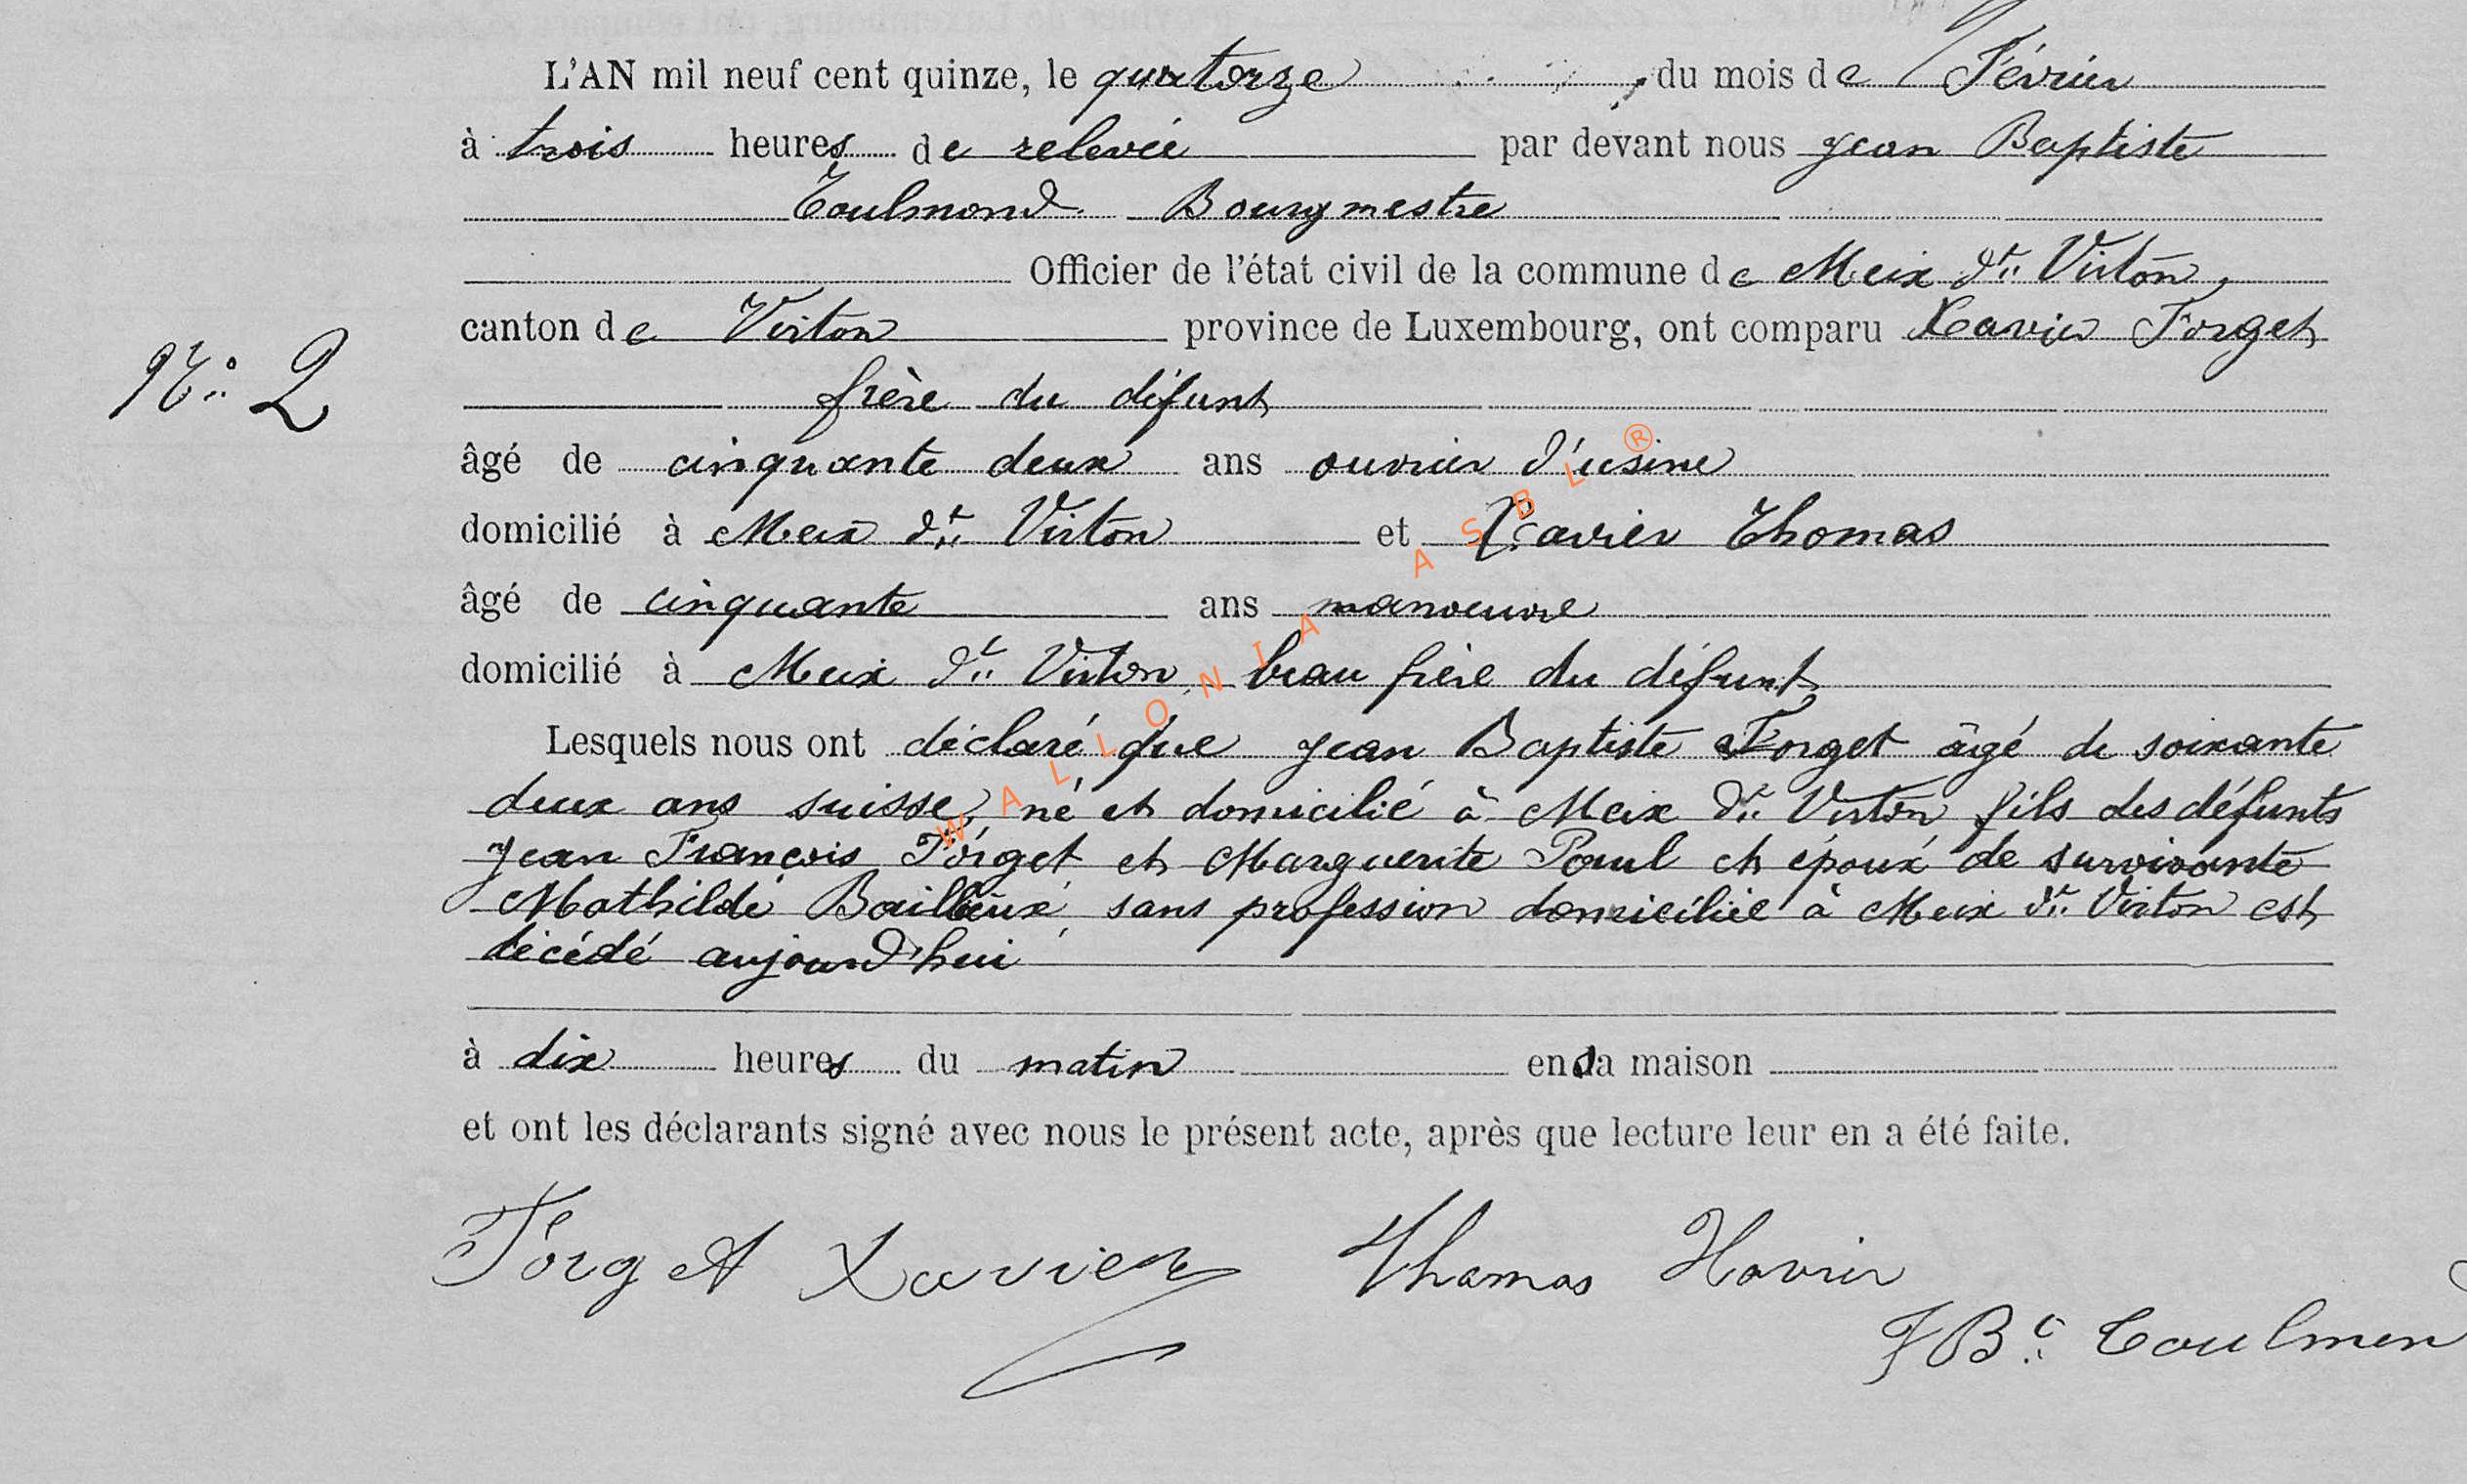 L'AN mil neuf cent quinze, le quatorze du mois de Février
à trois heures de relevée par devant nous Jean Baptiste
Toulmond Bourgmestre
Officier de l'état civil de la commune de Meix dt Virton,
canton de Virton province de Luxembourg, ont comparu Xavier Forget
N° 2
frère du défunt
âgé de cinquante deux ans ouvrier d'usine
domicilié à Meix dt Virton et Xavier Thomas
âgé de cinquante ans manoeuvre
domicilié à Meix dt Virton, beau frère du défunt
Lesquels nous ont déclaré que Jean Baptiste Forget âgé de soixante
deux ans suisse, né et domicilié à Meix dt Virton fils des défunts
Jean François Forget et Marguerite Paul et époux de survivante
Mathilde Bailleux, sans profession domiciliée à Meix dt Virton est
décédé aujourd'hui
à dix heures du matin en sa maison
et ont les déclarants signé avec nous le présent acte, après que lecture leur en a été faite.
Forget Xavier Thomas Xavier
JBte Toulmon
WALLONIA ASBL ®